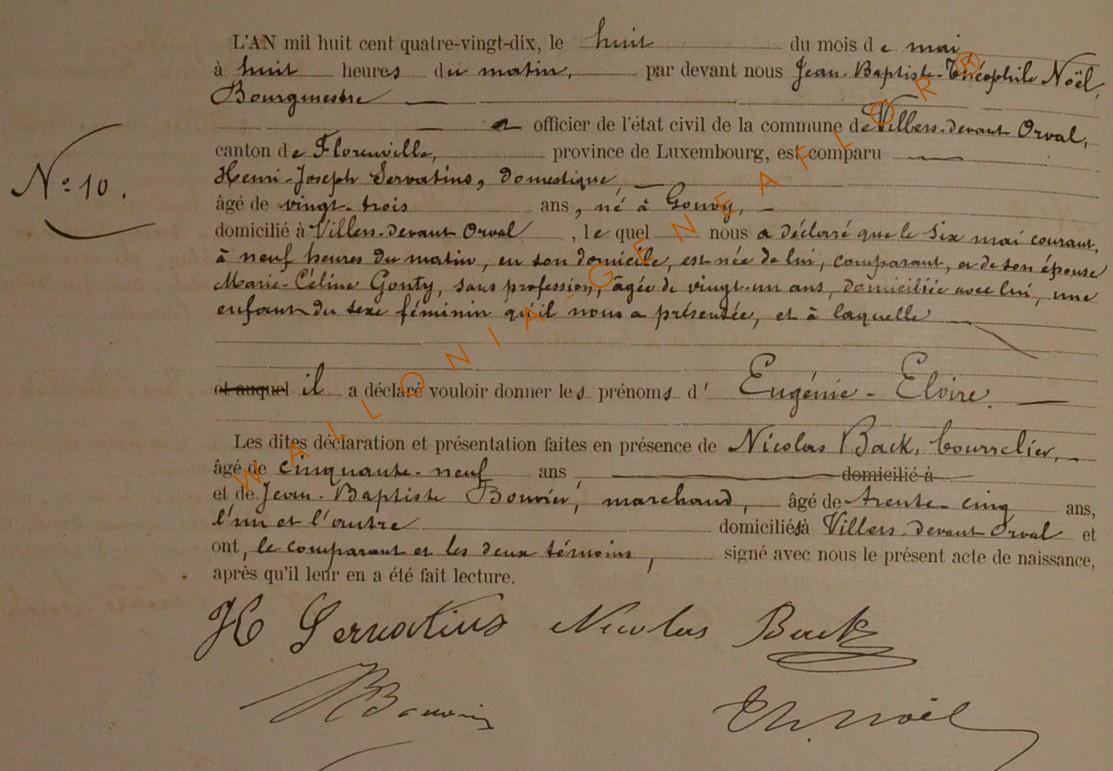 L'AN mil huit cent quatre-vingt-dix, le huit du mois de mai
à huit heures du matin, par devant nous Jean-Baptiste-Théophile Noël,
Bourgmestre
officier de l'état civil de la commune de Villers-devant Orval,
canton de Florenville, province de Luxembourg, est comparu
Henri-Joseph Servatius, domestique,
N° 10.
âgé de vingt-trois ans, né à Gouvy,
domicilié à Villers-devant Orval, lequel nous a déclaré que le six mai courant,
à neuf heures du matin, en son domicile, est née de lui, comparant, et de son épouse
Marie-Céline Gonty, sans profession, âgée de vingt-un ans, domiciliée avec lui, une
enfant du sexe féminin qu'il nous a présentée, et à laquelle
et auquel il a déclaré vouloir donner les prénoms d' Eugénie-Elvire.
Les dites déclaration et présentation faites en présence de Nicolas Back, bourrelier,
âgé de cinquante-neuf ans domicilié à
et de Jean-Baptiste Bouvier, marchand, âgé de trente-cinq ans,
l'un et l'autre domiciliés à Villers-devant Orval et
ont, le comparant et les deux témoins, signé avec nous le présent acte de naissance,
après qu'il leur en a été fait lecture.
H Servatius Nicolas Back
JBBouvier Th. Noël
WALLONIA-GENEAFLOR®